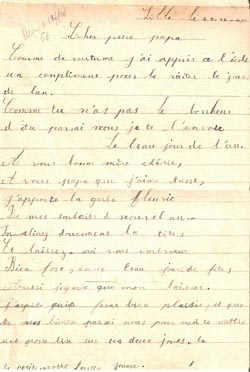 Lille le
Cher petit papa
Comme de coutume j'ai appris a l'école
un compliment pour le réciter le jour
de l'an.
Comme tu n'as pas le bonheur
d'être parmi nous je te l'envoie
Le beau jour de l'an.
A vous bonne mère chérie,
A vous papa que j'aime tant,
J'apporte la gerbe fleurie
De mes souhaits de nouvel an.
Inclinez doucement la tête,
Et laissez-moi vous embrasser
Bien fort, en ce beau jour de fête,
Aussi joyeux que mon baiser.
J'espère qu'il fera bien plaisir, et que
tu parmi nous pour me mettre
une grosse bise sur ses deux joues. ta
petite Louise